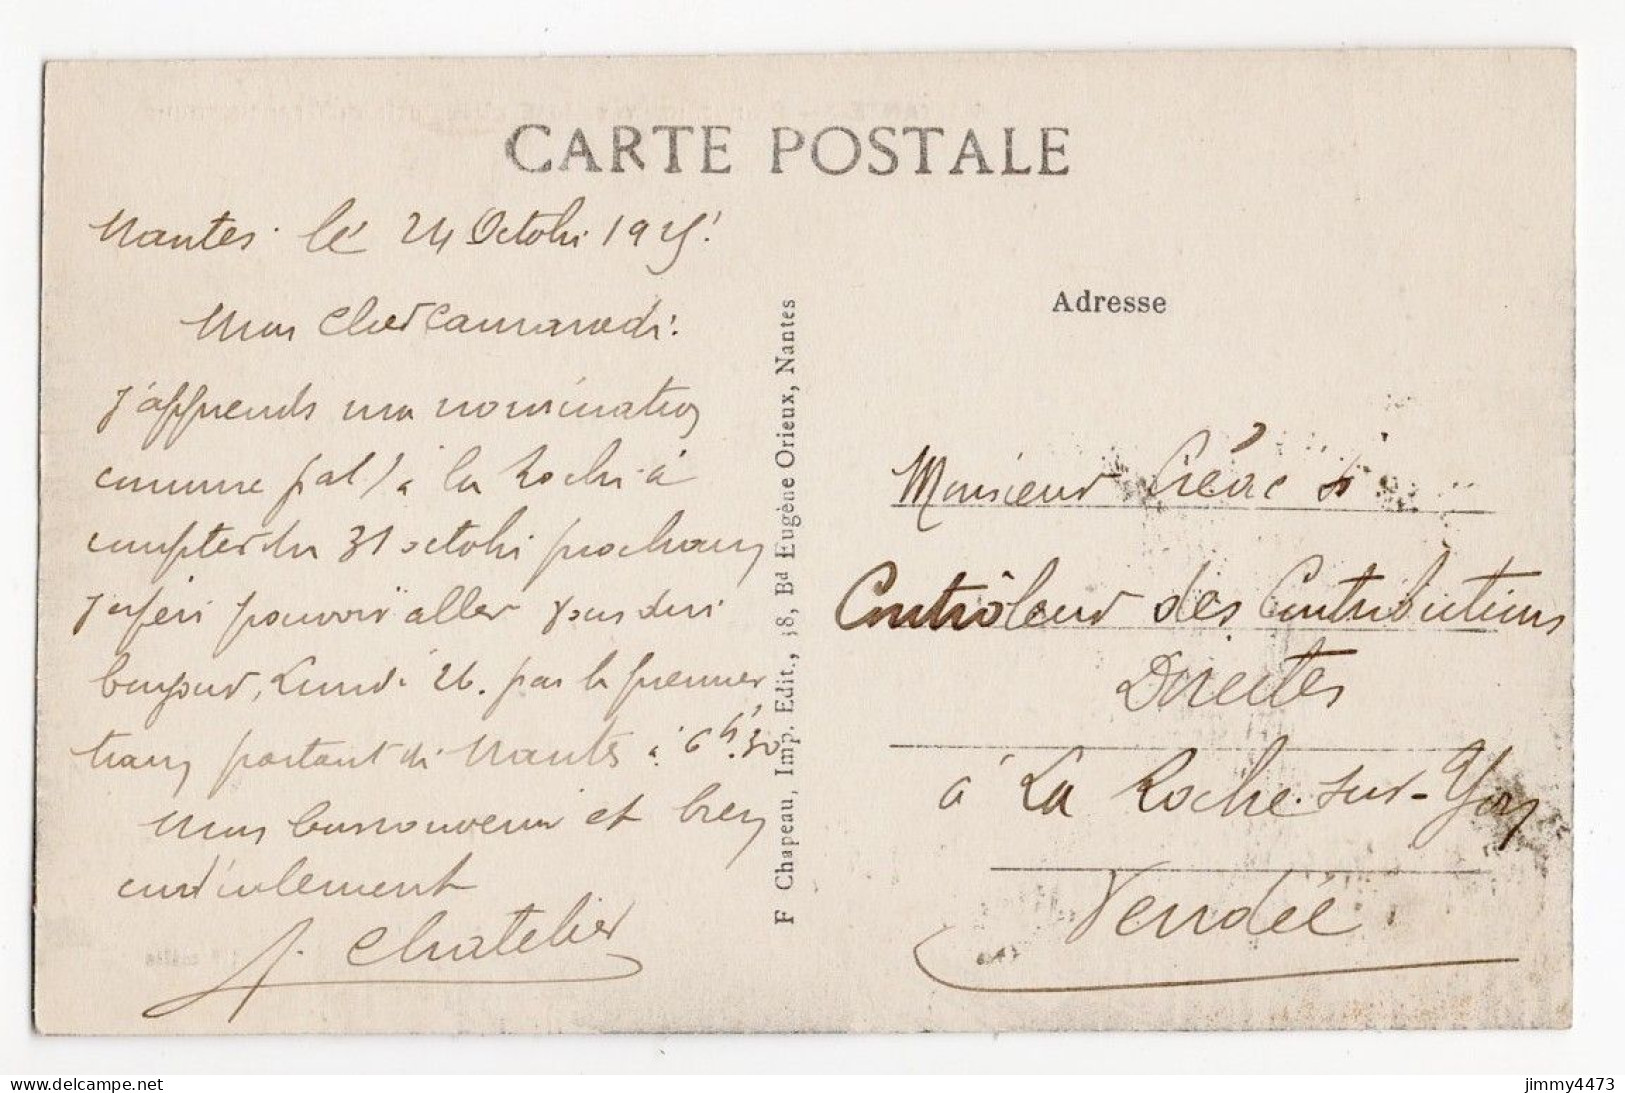 CARTE POSTALE
Nantes le 24 Octobre 1925.
Mon Cher Camarade.
J'apprends ma nomination
comme pal à la Roche à
compter du 31 octobre prochain
J'espère pouvoir aller vous dire
bonjour, Lundi 26. par le premier
train partant de Nantes à 6h30
Mon bon souvenir et bien
cordialement
J. Chatelier
F Chapeau, Imp. Edit., 38, Bd Eugène Orieux, Nantes
Adresse
Monsieur
Contrôleur des Contributions
Directes
à La Roche-sur-Yon
Vendée
www.delcampe.net
jimmy4473